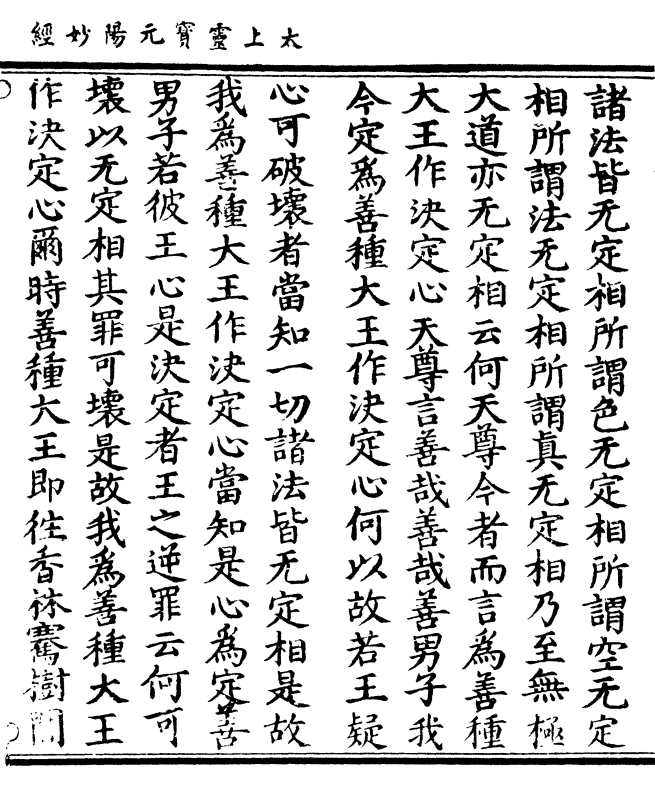 太上靈寳元陽妙經
諸法皆无定相所謂色无定相所謂空无定
相所謂法无定相所謂真无定相乃至無極
大道亦无定相云何天尊今者而言爲善種
大王作決定心天尊言善哉善哉善男子我
今定爲善種大王作決定心何以故若王疑
心可破壞者當知一切諸法皆无定相是故
我爲善種大王作決定心當知是心爲定善
男子若彼王心是決定者王之逆罪云何可
壞以无定相其罪可壞是故我爲善種大王
作決定心爾時善種大王即往香林騫樹間